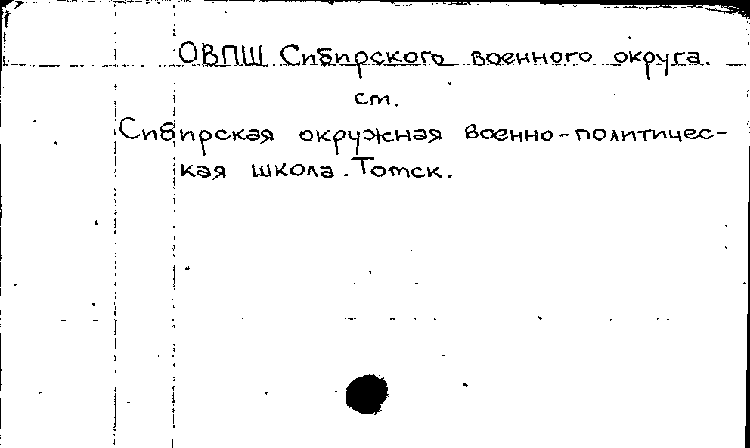 ОВПШ Сибирского военного округа.
см.
Сибирская окружная военно-политичес-
кая школа. Томск.